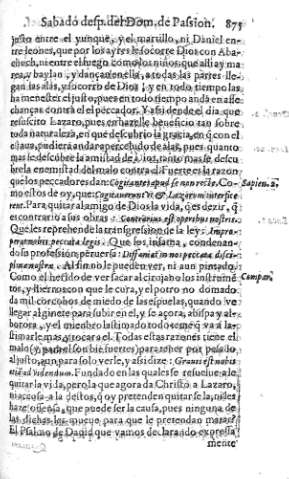 Sabado desp. del Dom. de Passion. 875
justo entre el yunque, y el martillo, ni Daniel en-
tre leones, que por los ayres le socorre Dios con Aba-
chuch, ni entre el fuego como los niños que alli ay ma-
res, y baylan, y dançan en ella, a todas las partes lle-
gan las alas, y socorro de Dios; y en todo tiempo las
ha menester el justo, pues en todo tiempo anda en asse-
chanças contra el el peccador. Y assi desde el dia que
resuscito Lazaro, pues en hazelle beneficio tan sobre
toda naturaleza, en que descubrio la gracia, en q̃ con el
estaua, pudiera andar apercebudo de alas, pues quanto
mas le descubre la amistad de Dios, tanto mas se descu-
bre la enemistad del malo contra el. Fuerte es la razon
que los peccadores dan: Cogitantes apud se non recte. Co- Sapien. 2.
mo estos de oy, que Cogitauerunt vt & Lazarum interfice
rent. Para quitar al amigo de Dios la vida, q̃ es dezir, q̃
es contrario a sus obras: Contrarius est operibus nostris.
Que les reprehende la transgression de la ley: Impro-
properat nobis peccata legis. Que los infama, condenan-
do su profession peruersa: Diffamat in nos peccata disci-
plinæ nostræ. Al fin no le pueden ver, ni aun pintado.
Como el herido de ver sacar al cirujano los instrumẽ- Compar.
tos, y hierros con que le cura, y el potro no domado
da mil corcobos de miedo de las espuelas, quando ve
llegar al ginete para subir en el, y se açora, abispa y al-
borota, y el miembro lastimado todo teme q̃ va a la-
stimarle mas, y tocara el. Todas estas razones tiene el
malo
al justo, aun para solo verle, y assi dize: Grauis est nobis
etiã ad videndum. Fundado en las quales se resuelue a le
quitar la vida, pero la que agora da Christo a Lazaro,
ni acusa a la destos, q̃ oy pretenden quitarsela, ni les
haze ofensa, que puede ser la causa, pues ninguna de
las dichas les mueue para que le pretendan matar?
El Psalmo de Dauid que vamos declarando expressa
mente